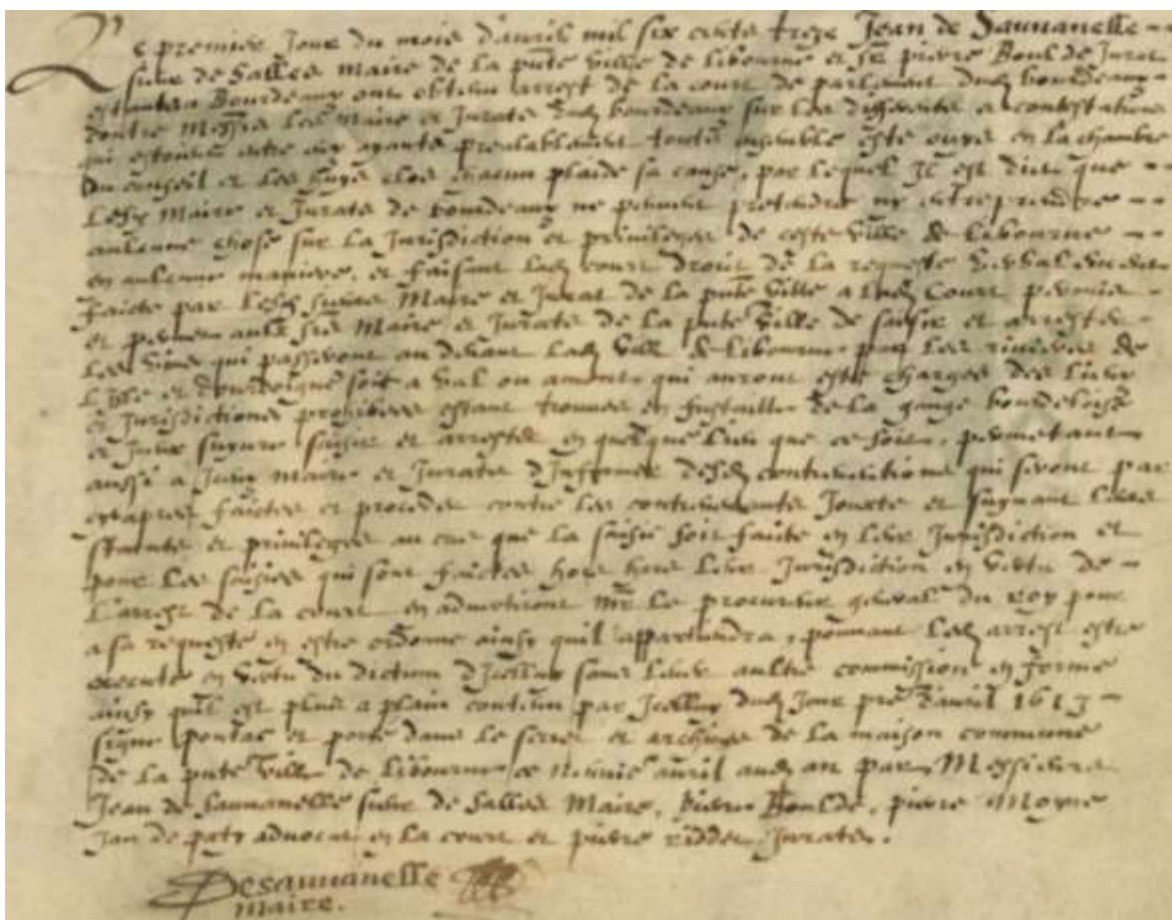 Le premier Jour du mois d'auril mil six cents treze Jean de Sauuanelle
sieur de Salles maire de la pnte ville de Libourne et sr pierre Boulde Jurat
estantz a Bourdeaux ont obtenu arrest de la court de parlement dud bourdeaux
contre Messrs les Maire et Jurats dud bourdeaux sur les differents et contestations
qui estoient entre eux ayants prealablement toutes ensemble este ouys en la chambre
du conseil et les huys clos chacun plaide sa cause, par lequel Il est dict que
Lesd Maire et Jurats de bourdeaux ne peuuent pretendre ny entreprendre
aulcune chose sur la Jurisdiction et priuileges de ceste ville de Libourne
en aulcune maniere, et faisant lad court droit de la requeste verbalement
faicte par lesd sieurs Maire et Jurat de la pnte ville a lad Court permis
et permet aulx srs Maire et Jurats de la pnte ville de saisir et arrester
Les vins qui passeront au deuant lad ville de Libourne par les riuieres de
L'isle et dourdoigne soit a val ou amont qui auront este charges des lieux
et Jurisdictions prohibees estant trouues en fustaille de la gauge bourdeloise
et Iceux suyure saisir et arrester en quelque lieu que ce soit, permetant
aussi a Iceux maire et Jurats d'Informer desd contreuentions qui seront par
cy apres faictes et proceder contre les contreuenants Jouxte et suyuant leurs
statuts et priuileges au cas que la saisie soit faite en leur Jurisdiction et
pour les saisies qui sont faictes hors hors leur Jurisdiction en vertu de
L'arrest de la court en aduertiront Mr le procureur general du roy pour
a sa requeste en estre ordonne ainsy quil appartiendra, pouuant led arrest estre
execute en vertu du dictum d'Icelluy sans leuer aultre commission en forme
ainsy quil est plus a plain contenu par Icelluy dud Jour pre d'auril 1613
signe pontac et porte dans le serre et archiues de la maison commune
de la pnte ville de Libourne ce auril aud an par Messieurs
Jean de Sauuanelle sieur de Salles Maire, pierre Boulde, pierre Moyne
Jan de paty aduocat en la court et pierre ridder Jurats.
Desauuanelle
maire.